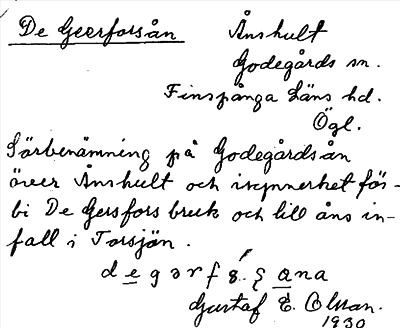 De Geerforsån
Ånshult
Godegårds sn.
Finspånga Läns hd.
Ögl.
Särbenämning på Godegårdsån
över Ånshult och isynnerhet för-
bi De Gersfors bruk och till åns in-
fall i Torsjön.
Gustaf E. Olsson.
1930